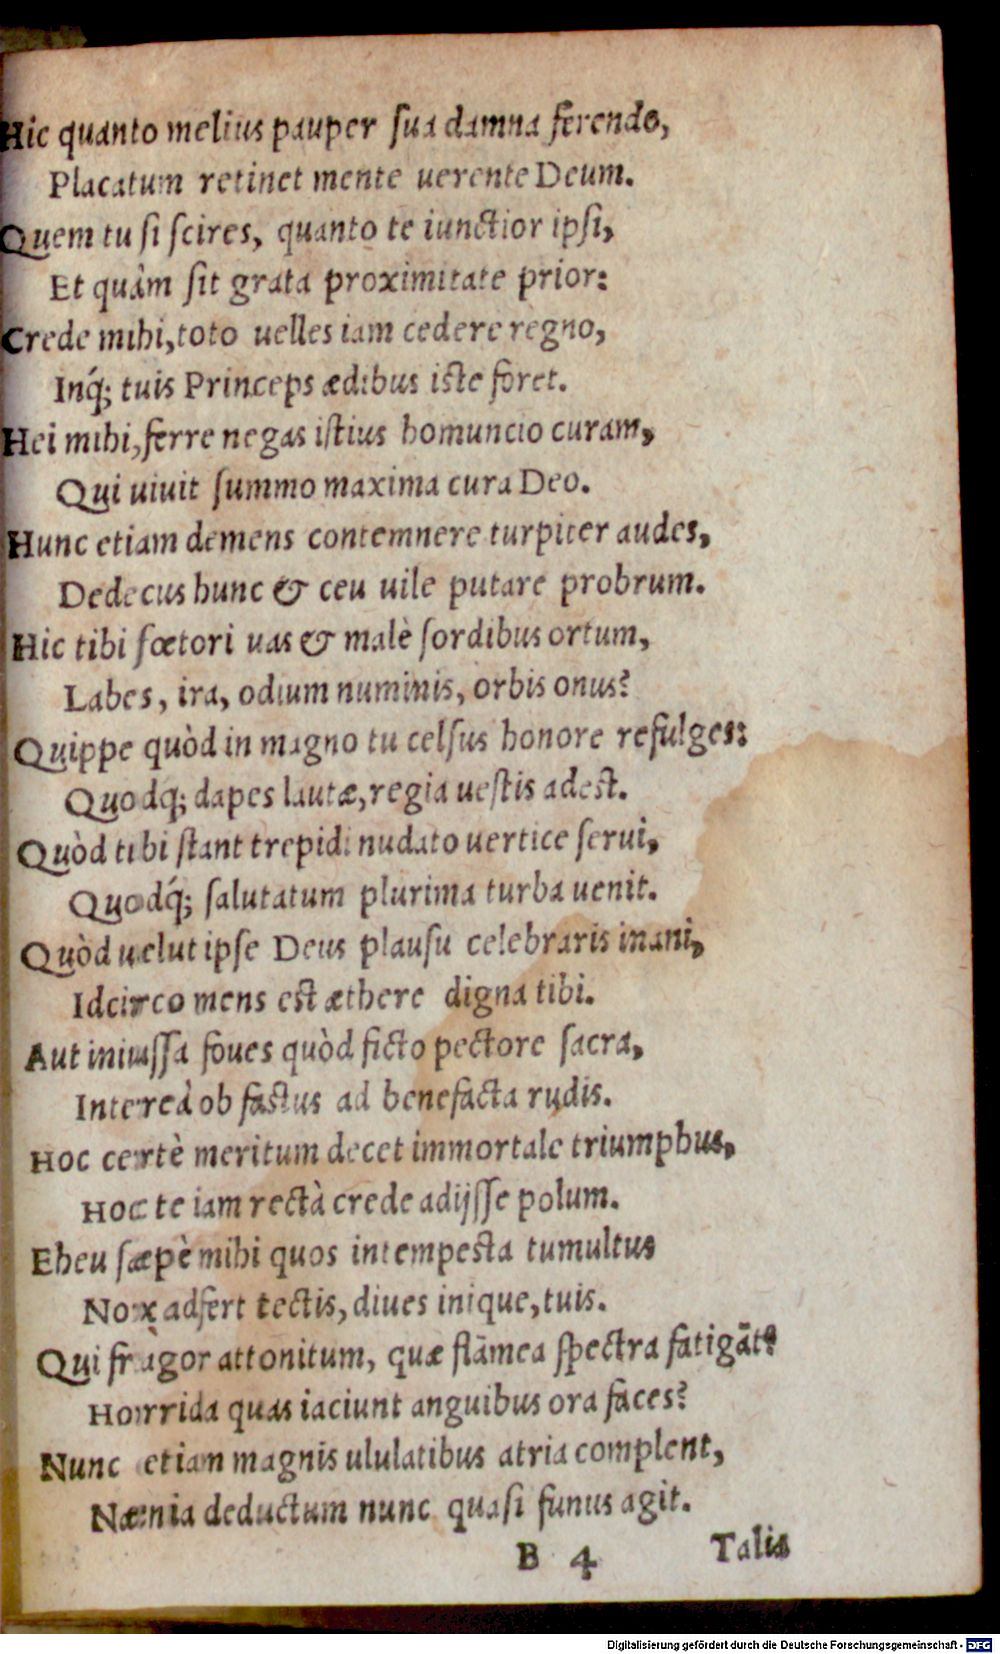 Hic quanto melius pauper sua damna ferendo,
Placatum retinet mente uerente Deum.
Quem tu si scires, quanto te iunctior ipsi,
Et quàm sit grata proximitate prior:
Crede mihi, toto uelles iam cedere regno,
Inq́; tuis Princeps ædibus iste foret.
Hei mihi, ferre negas istius homuncio curam,
Qui uiuit summo maxima cura Deo.
Hunc etiam demens contemnere turpiter audes,
Dedecus hunc & ceu uile putare probrum.
Hic tibi fœtori uas & malè sordibus ortum,
Labes, ira, odium numinis, orbis onus?
Quippe quòd in magno tu celsus honore refulges:
Quodq́; dapes lautæ, regia uestis adest.
Quòd tibi stant trepidi nudato uertice serui,
Quodq́; salutatum plurima turba uenit.
Quòd uelut ipse Deus plausu celebraris inani,
Idcirco mens est æthere digna tibi.
Aut iniussa foues quòd ficto pectore sacra,
Intereà ob fastus ad benefacta rudis.
Hoc certè meritum decet immortale triumphus,
Hoc te iam rectà crede adijsse polum.
Eheu sæpè mihi quos intempesta tumultus
Nox adfert tectis, diues inique, tuis.
Qui fràgor attonitum, quæ flāmea spectra fatigāt?
Horrida quas iaciunt anguibus ora faces?
Nunc etiam magnis ululatibus atria complent,
Nænia deductum nunc quasi funus agit.
B 4 Talis
Digitalisierung gefördert durch die Deutsche Forschungsgemeinschaft - DFG